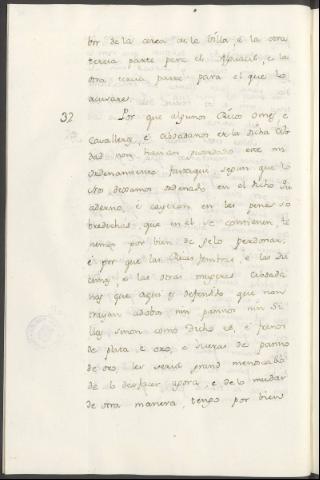 bor de la cerca de la Villa, e la otra
tercia parte para el Oficial, e la
otra tercia parte para el que lo
acusare.
32 Por que algunos Ricos Omes, e
Cavalleros, e Cibdadanos en la dicha Cib
dad non havian guardado este mi
ordenamiento fasta aquí, segun que lo
Nos dexamos ordenado en el dicho Qu
aderno, e cayeron en las penas so
bredichas, que en el se contienen, te
nemos por bien de gelo perdonar;
e por que las Ricas fembras, e las Du
eñas, e las otras mugeres Cibdada
nas que agora es defendido que non
trayan adobos nin paños nin Si
llas sinon como dicho es, e frenos
de plata e oro, e sueras de paño
de oro, les seria grand menoscabo
de lo desfacer agora, e de lo mudar
de otra manera, tengo por bien